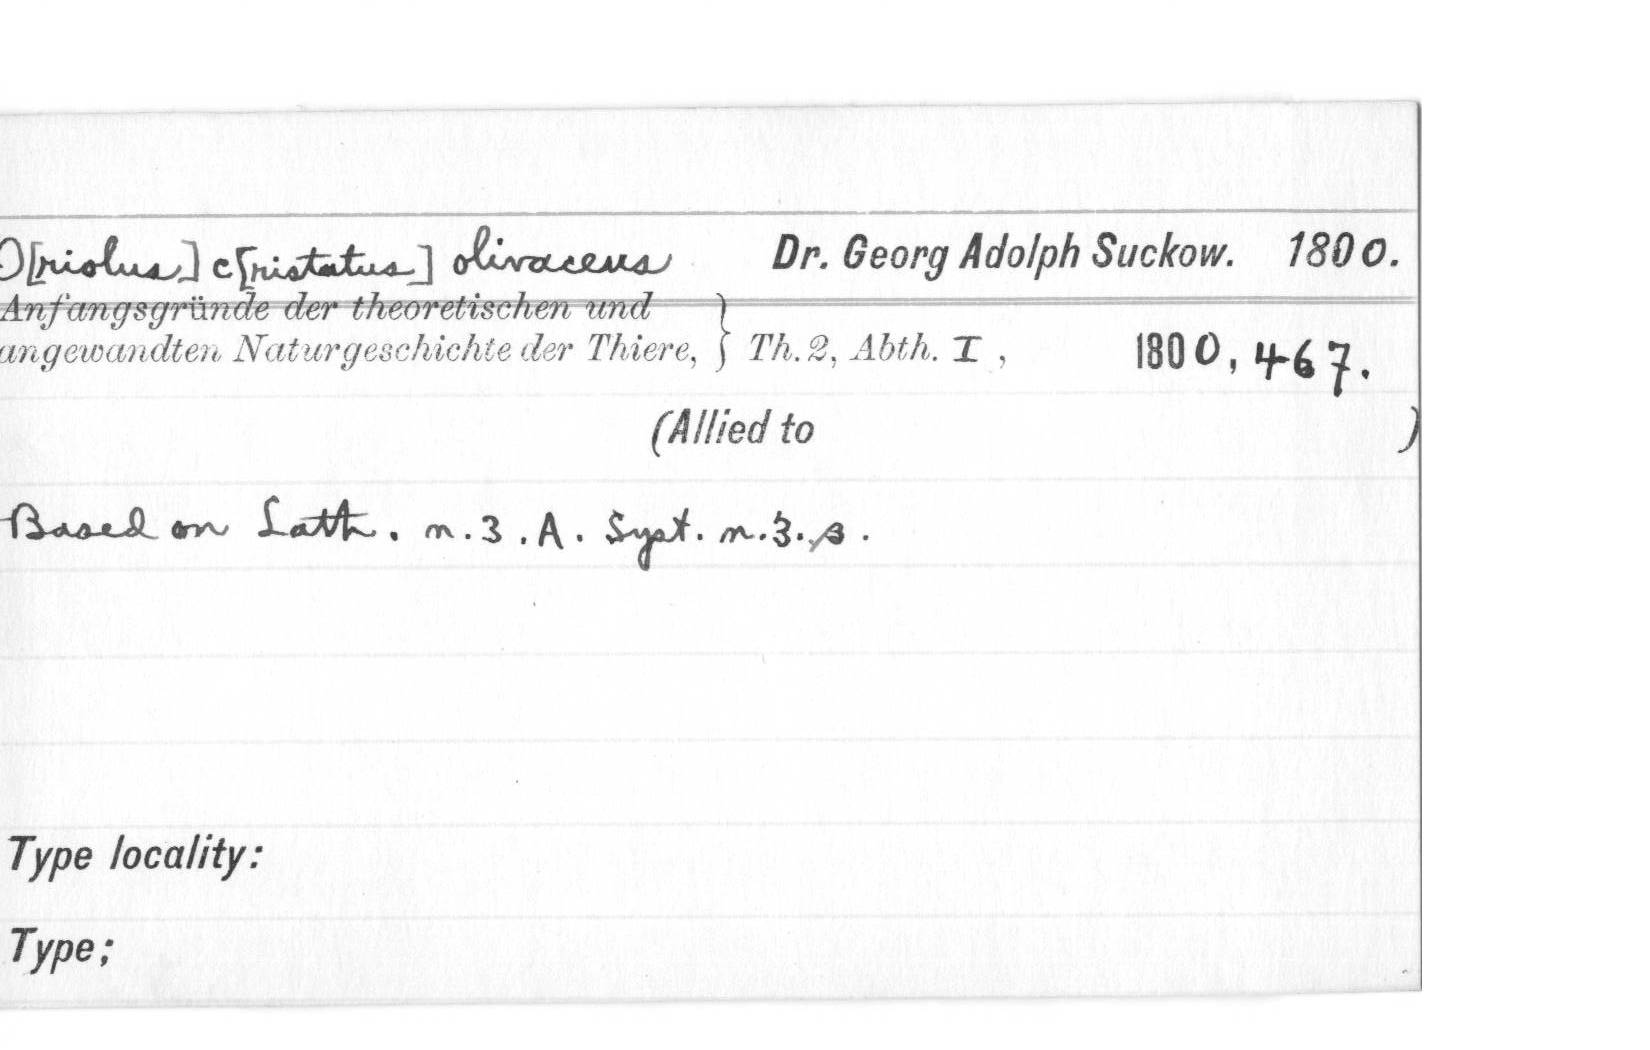 O[riolus] c[ristatus] olivaceus Dr. Georg Adolph Suckow. 1800.
Anfangsgründe der theoretischen und
angewandten Naturgeschichte der Thiere, } Th. 2, Abth. I, 1800, 467.
(Allied to )
Based on Lath. n. 3. A. Syst. n. 3. β.
Type locality:
Type;